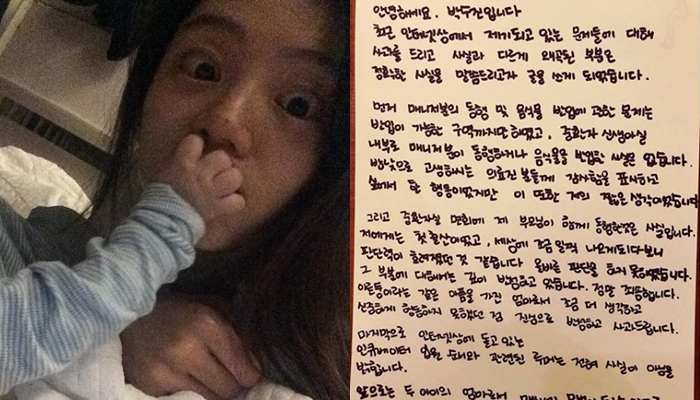 안녕하세요. 박수진입니다
최근 인터넷상에서 제기되고 있는 문제들에 대해
사과를 드리고 사실과 다르게 왜곡된 부분은
정확한 사실을 말씀드리고자 글을 쓰게 되었습니다.
먼저 매니저분의 동행 및 음식물 반입에 관한 문제는
반입이 가능한 구역까지만 하였고, 중환자 신생아실
내부로 매니저분이 동행하거나 음식물을 반입한 사실은 없습니다.
밤낮으로 고생하시는 의료진 분들께 감사함을 표시하고
싶어서 한 행동이었지만 이 또한 저의 짧은 생각이었습니다
그리고 중환자실 면회에 제 부모님이 함께 동행한것은 사실입니다.
저에게는 첫 출산이었고, 세상에 조금 일찍 나오게되다보니
판단력이 흐려졌던 것 같습니다 올바른 판단을 하지 못하였습니다.
그 부분에 대해서는 깊이 반성하고 있습니다. 정말 죄송합니다.
이른둥이라는 같은 아픔을 가진 엄마로서 조금 더 생각하고
신중하게 행동하지 못했던 점 진심으로 반성하고 사과드립니다.
마지막으로 인터넷상에 돌고 있는
인큐베이터 입원 순서와 관련된 루머는 전혀 사실이 아님을
밝힙니다.
앞으로는 두 아이의 엄마로서